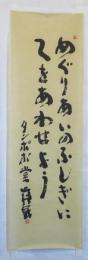 めぐりあいのふしぎに
てをあわせよう
タンポポ堂